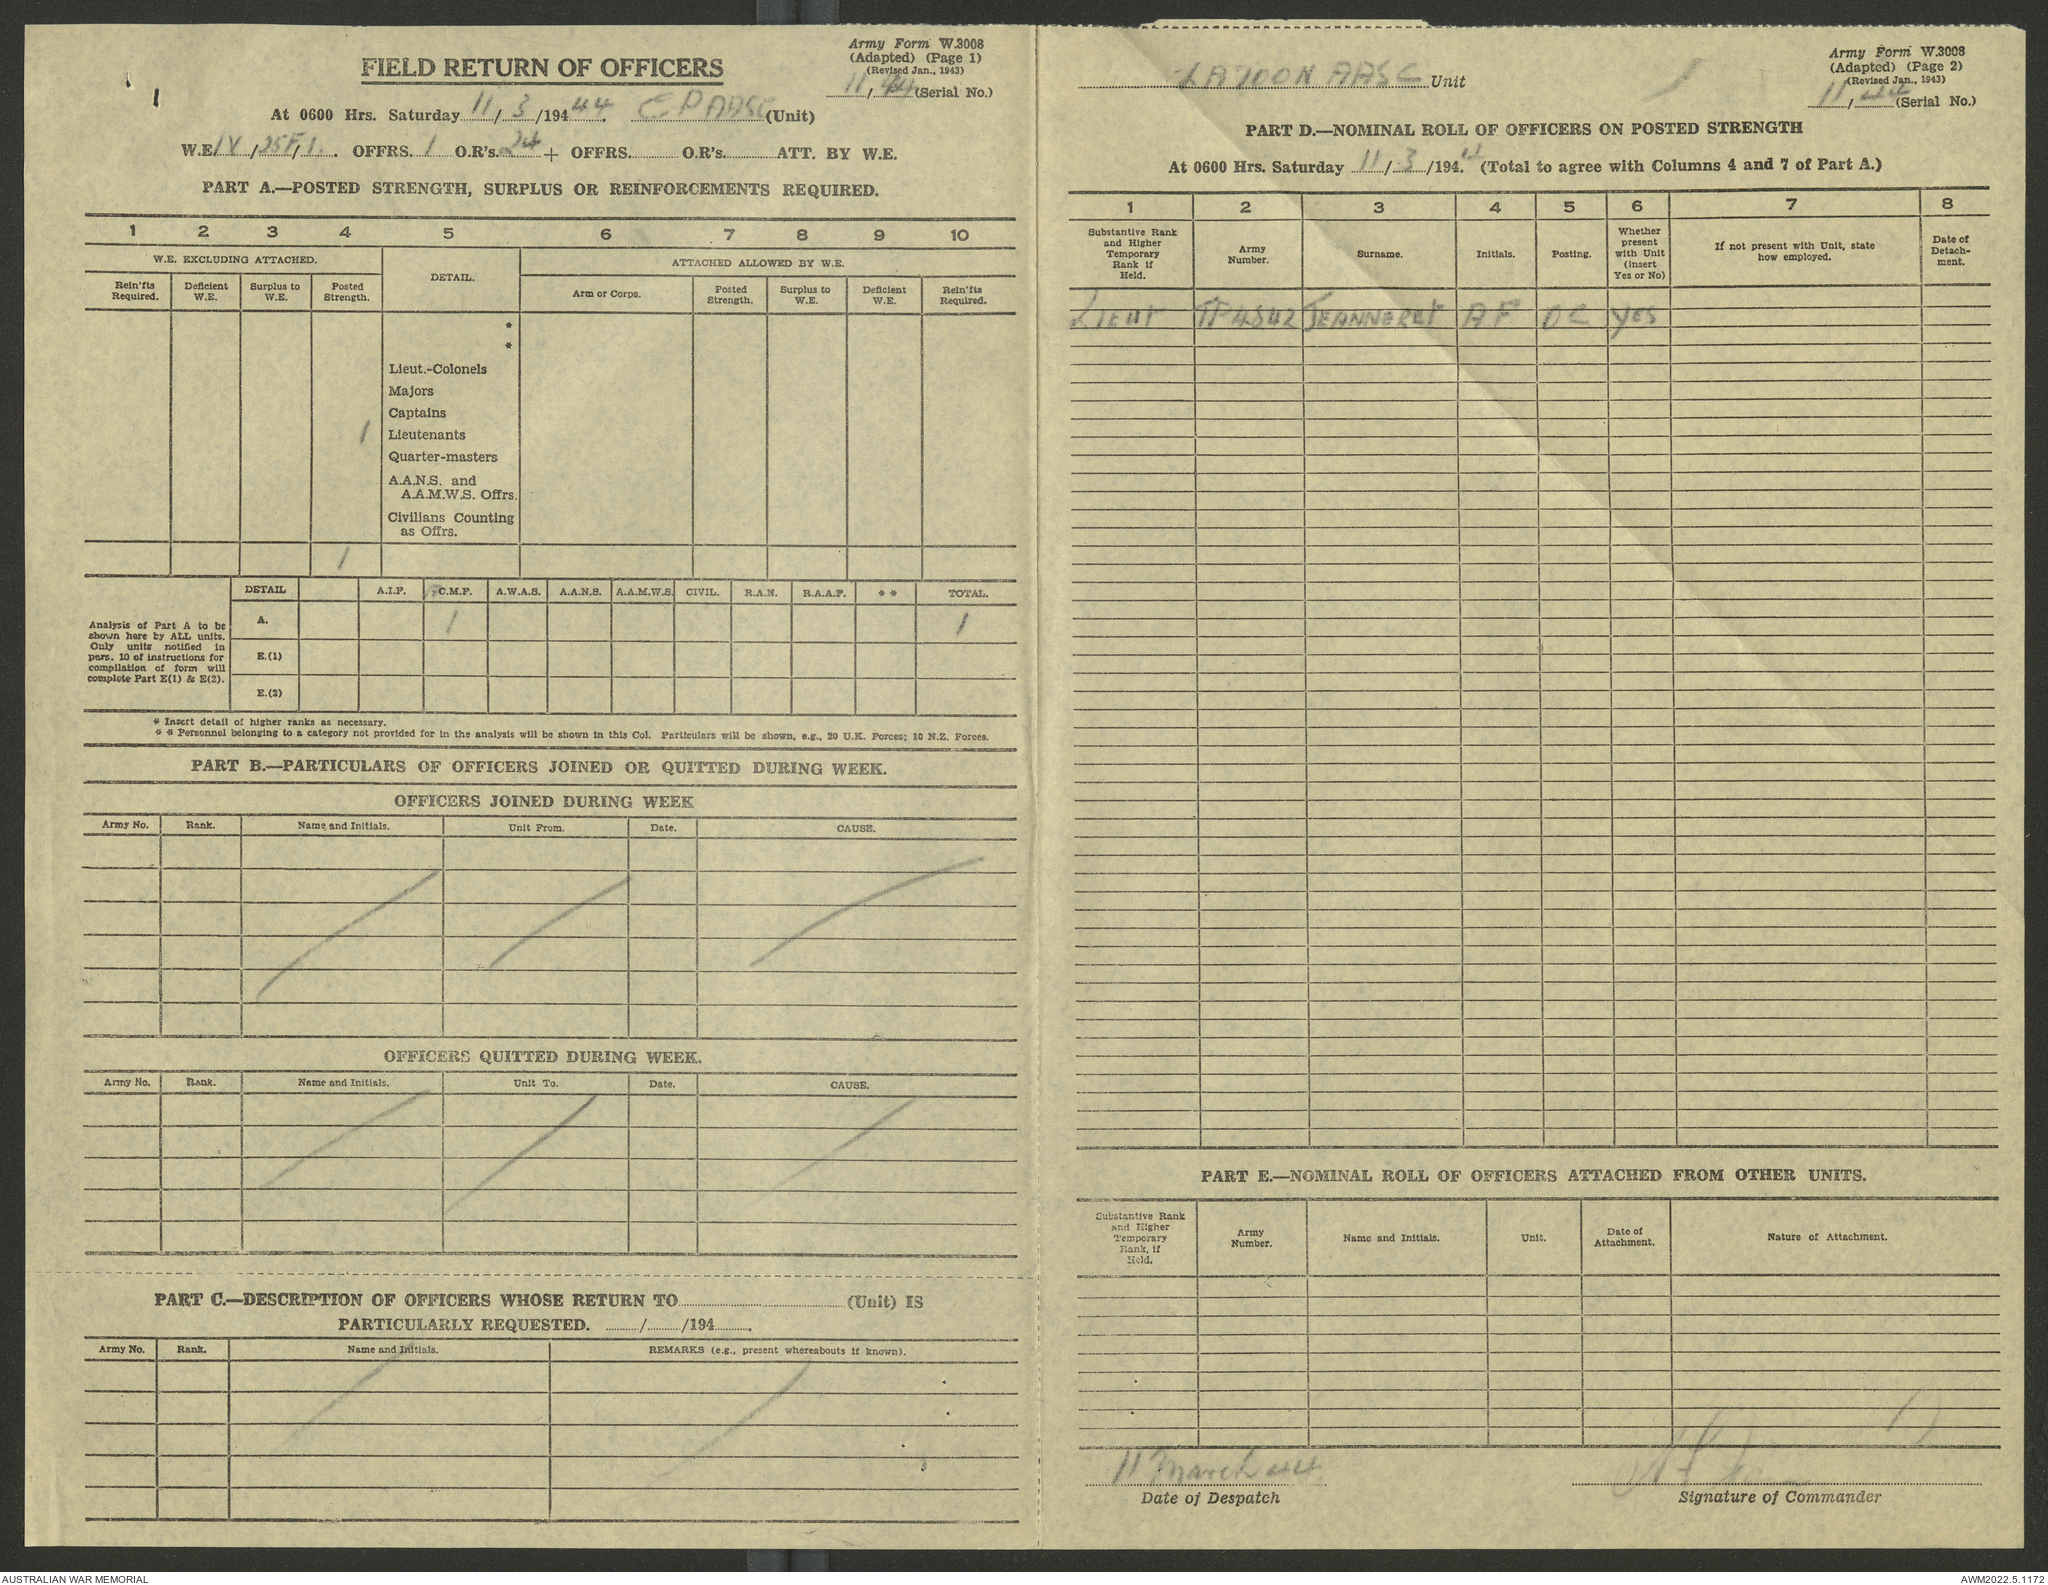 Army Form W.3008
(Adapted) (Page 1)
(Revised Jan., 1943)
11/44 (Serial No.)
FIELD RETURN OF OFFICERS
At 0600 Hrs. Saturday 11/3/1944. (Unit)
W.E. IV/25F/1. OFFRS. 1 O.R's. 24 + OFFRS. O.R's. ATT. BY W.E.
PART A.—POSTED STRENGTH, SURPLUS OR REINFORCEMENTS REQUIRED.
1 2 3 4 5 6 7 8 9 10
W.E. EXCLUDING ATTACHED. DETAIL. ATTACHED ALLOWED BY W.E.
Rein'fts Required. Deficient W.E. Surplus to W.E. Posted Strength. Arm or Corps. Posted Strength. Surplus to W.E. Deficient W.E. Rein'fts Required.
*
*
Lieut.-Colonels
Majors
Captains
1 Lieutenants
Quarter-masters
A.A.N.S. and
A.A.M.W.S. Offrs.
Civilians Counting
as Offrs.
1
DETAIL A.I.F. C.M.F. A.W.A.S. A.A.N.S. A.A.M.W.S. CIVIL. R.A.N. R.A.A.F. * * TOTAL.
Analysis of Part A to be
shown here by ALL units.
Only units notified in
para. 10 of instructions for
compilation of form will
complete Part E(1) & E(2).
A. 1 1
E.(1)
E.(2)
* Insert detail of higher ranks as necessary.
* * Personnel belonging to a category not provided for in the analysis will be shown in this Col. Particulars will be shown, e.g., 20 U.K. Forces; 10 N.Z. Forces.
PART B.—PARTICULARS OF OFFICERS JOINED OR QUITTED DURING WEEK.
OFFICERS JOINED DURING WEEK
Army No. Rank. Name and Initials. Unit From. Date. CAUSE.
OFFICERS QUITTED DURING WEEK.
Army No. Rank. Name and Initials. Unit To. Date. CAUSE.
PART C.—DESCRIPTION OF OFFICERS WHOSE RETURN TO (Unit) IS
PARTICULARLY REQUESTED. / /194 .
Army No. Rank. Name and Initials. REMARKS (e.g., present whereabouts if known).
Army Form W.3008
(Adapted) (Page 2)
(Revised Jan., 1943)
11/44 (Serial No.)
AASC Unit
PART D.—NOMINAL ROLL OF OFFICERS ON POSTED STRENGTH
At 0600 Hrs. Saturday 11/3/1944. (Total to agree with Columns 4 and 7 of Part A.)
1 2 3 4 5 6 7 8
Substantive Rank and Higher Temporary Rank if Held. Army Number. Surname. Initials. Posting. Whether present with Unit (insert Yes or No) If not present with Unit, state how employed. Date of Detachment.
LIEUT JEANNERET A F OC YES
PART E.—NOMINAL ROLL OF OFFICERS ATTACHED FROM OTHER UNITS.
Substantive Rank and Higher Temporary Rank, if Held. Army Number. Name and Initials. Unit. Date of Attachment. Nature of Attachment.
11 March 44
Date of Despatch Signature of Commander
AUSTRALIAN WAR MEMORIAL AWM2022.5.1172